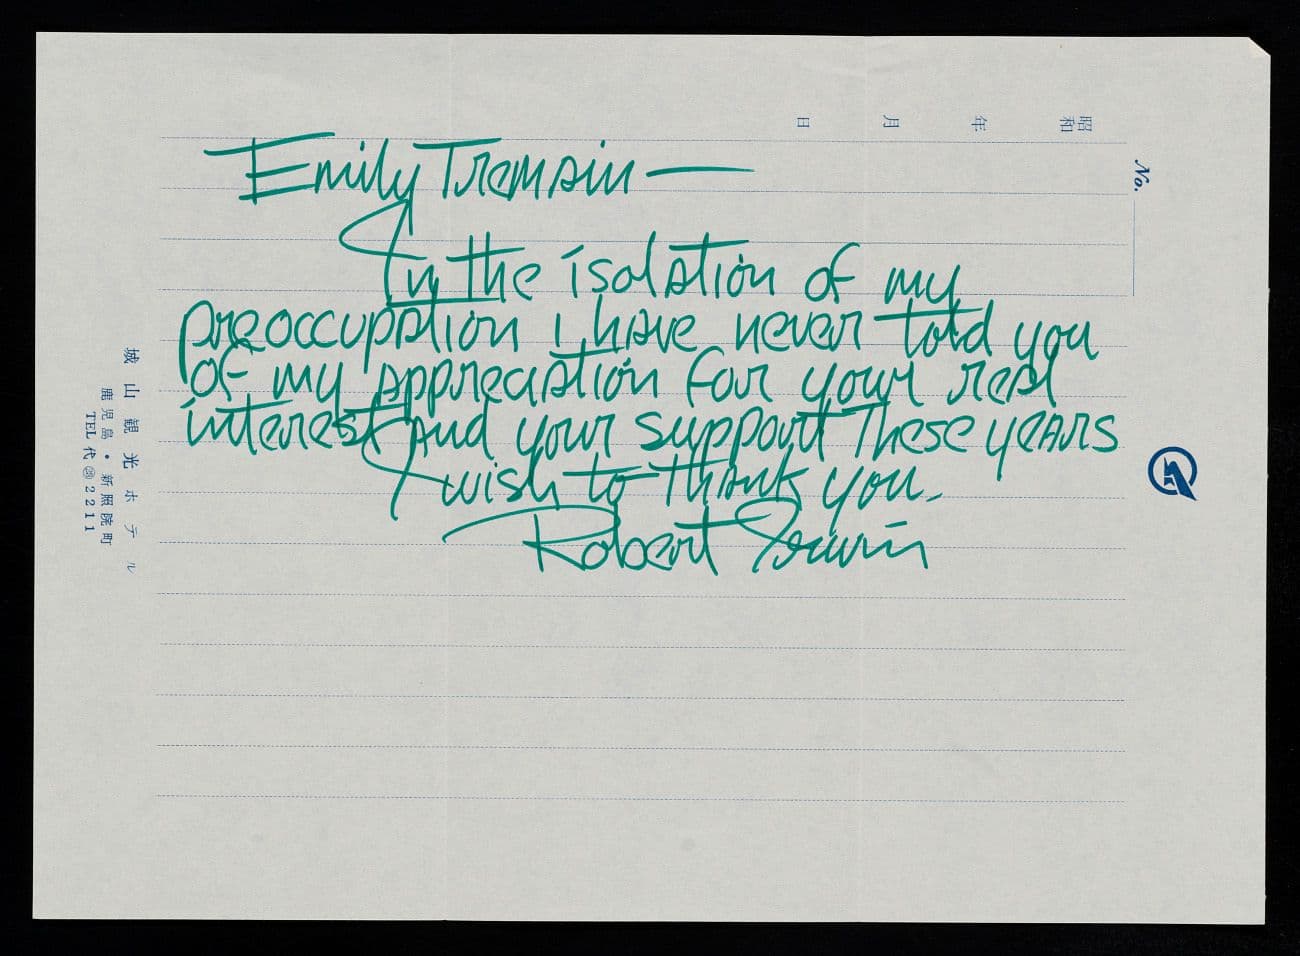 昭和 年 月 日
No.
Emily Tremain —
In the isolation of my
preoccupation i have never told you
of my appreciation for your real
interest and your support these years
I wish to thank you.
Robert Irwin
城山観光ホテル
鹿児島・新照院町
TEL 代㉖2211